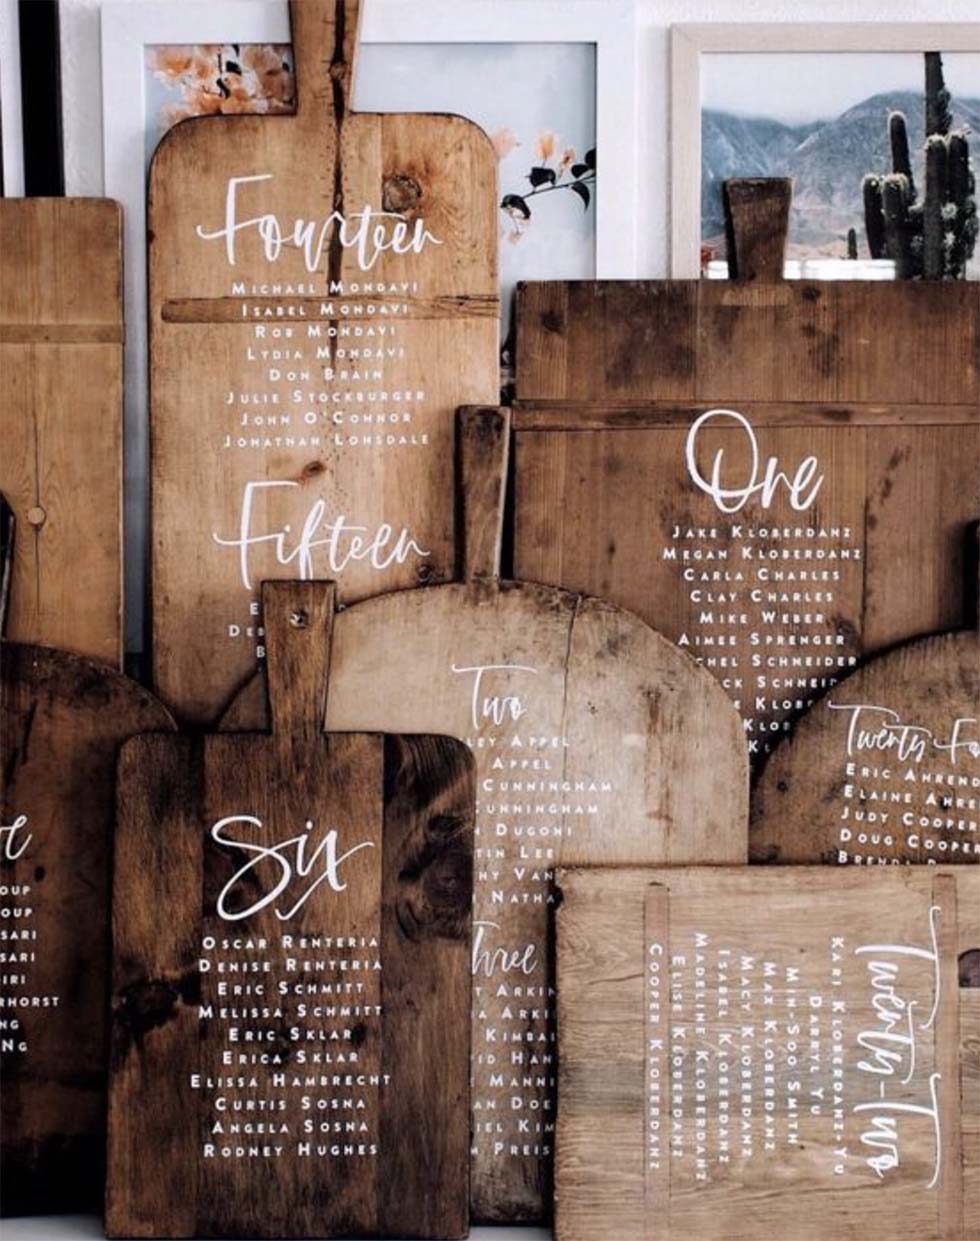 Fourteen
Michael Mondavi
Isabel Mondavi
Rob Mondavi
Lydia Mondavi
Don Brain
Julie Stockburger
John O'Connor
Jonathan Lonsdale
Fifteen
One
Jake Kloberdanz
Megan Kloberdanz
Carla Charles
Clay Charles
Mike Weber
Aimee Sprenger
Schneider
Two
Appel
Appel
Cunningham
Cunningham
Dugoni
Lee
Three
Twenty
Eric
Elaine
Judy Cooper
Doug Cooper
Six
Oscar Renteria
Denise Renteria
Eric Schmitt
Melissa Schmitt
Eric Sklar
Erica Sklar
Elissa Hambrecht
Curtis Sosna
Angela Sosna
Rodney Hughes
Ng
Twenty-Two
Kari Kloberdanz-Yu
Darryl Yu
Min-Soo Smith
Max Kloberdanz
Macy Kloberdanz
Isabel Kloberdanz
Madeline Kloberdanz
Elise Kloberdanz
Cooper Kloberdanz